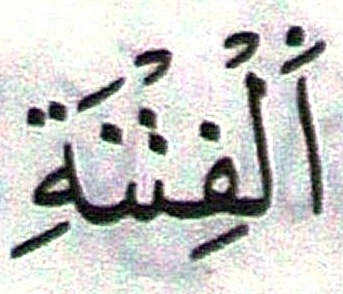 اَلْفِتْنَةِ